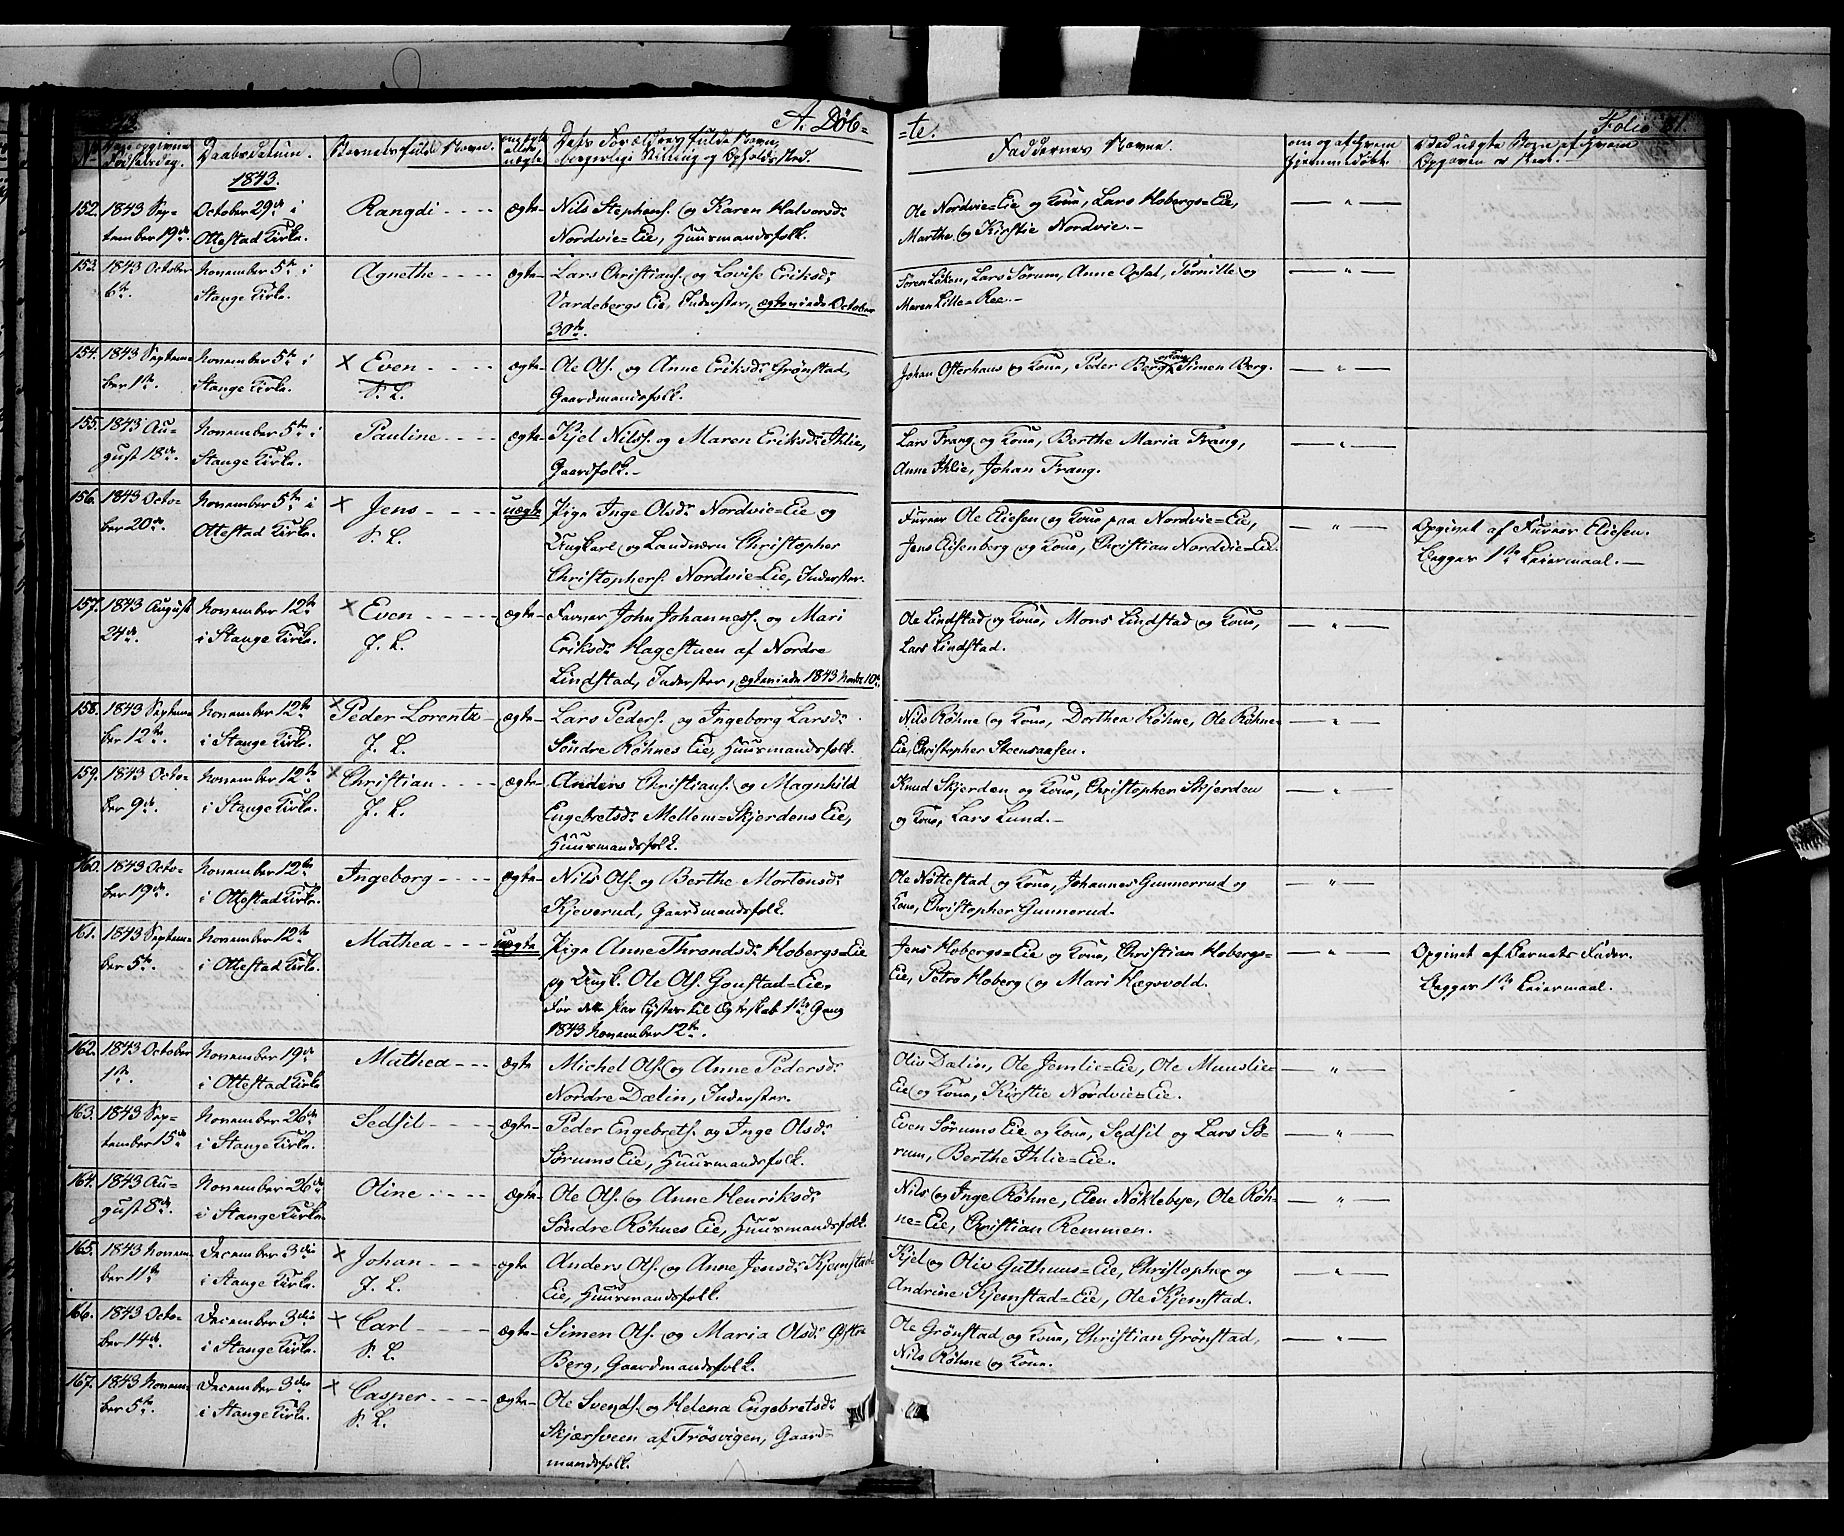 A. Døb-
-te.
Folio
Daabsdatum.
Barnets fulde Navn.
Dets Forældres fulde Navn,
borgerlige Stilling og Opholdssted.
Faddernes Navne.
om og af hvem
hjemmedøbt.
1843.
152. 1843 Sep- October 29de i Rangdi ægte Nils Stephens. og Karen Halvorsdr. Ole Nordvie=Eie og Kone, Lars Hobergs=Eie, — " —
tember 19de Ottestad Kirke. Nordvie=Eie, Huusmandsfolk. Marthe og Kirstie Nordvie.—
153. 1843 October November 5te i Agnethe ægte Lars Christians. og Lovise Eriksdr. Søren Løken, Lars Sørum, Anne Opsal, Pernille og — " —
6te. Stange Kirke. Vardebergs Eie, Inderster, ægteviede October Maren Lille=Ree.—
30te.
154. 1843 Septem- November 5te i × Even ægte Ole Ols. og Anne Eriksdr. Grønstad, Johan Osterhaus og Kone, Peder Berg og Kone, Simen Berg. — " —
ber 1ste. Stange Kirke. S. L. Gaardmandsfolk.
155. 1843 Au- November 5te i Pauline ægte Kjel Nils. og Maren Eriksdr. Ihlie, Lars Frang og Kone, Berthe Maria Frang, — " —
gust 18de. Stange Kirke. Gaardfolk.— Anne Ihlie, Johan Frang.
156. 1843 Octo- November 5te i × Jens uægte Pige Inge Olsdr. Nordvie=Eie og Furer Ole Eliesen og Kone paa Nordvie=Eie, — " — Opgivet af Furer Eliesen.
ber 20de. Ottestad Kirke. S. L. Ungkarl og Landværn Christopher Jens Eisenberg og Kone, Christian Nordvie=Eie. Begges 1ste Leiermaal.—
Christophers. Nordvie=Eie, Inderster.
157. 1843 August November 12te × Even ægte Farver John Johannes. og Mari Ole Lindstad og Kone, Mons Lindstad og Kone, — " —
24de. i Stange Kirke. J. L. Eriksdr. Hagestuen af Nordre Lars Lindstad.
Lindstad, Inderster, ægteviede 1843 Novbr 10de
158. 1843 Septem- November 12te × Peder Lorentz ægte Lars Peders. og Ingeborg Larsdr. Nils Røhne og Kone, Dorthea Røhne, Ole Røhne= — " —
ber 12te. i Stange Kirke. J. L. Søndre Røhnes Eie, Huusmandsfolk. Eie, Christopher Steensaasen.
159. 1843 Octo- November 12te × Christian ægte Anders Christians. og Magnhild Knud Skjerden og Kone, Christopher Skjerden — " —
ber 9de. i Stange Kirke. J. L. Engebretsdr. Mellem=Skjerdens Eie, og Kone, Lars Lund.—
Huusmandsfolk.
160. 1843 Octo- November 12te Ingeborg ægte Nils Ols. og Berthe Mortensdr. Ole Nøttestad og Kone, Johannes Gunnerud og — " —
ber 19de. i Ottestad Kirke. Kjeverud, Gaardmandsfolk. Kone, Christopher Gunnerud.
161. 1843 Septem- November 12te Mathea uægte Pige Anne Throndsdr. Hobergs=Eie Jens Hobergs=Eie og Kone, Christian Hobergs= — " — Opgivet af Barnets Fader.
ber 5te. i Ottestad Kirke. og Ungk. Ole Ols. Gonstad=Eie. Eie, Petro Hoberg og Mari Hægsvold. Begges 1ste Leiermaal.
For dette Par lystes til Ægteskab 1ste Gang
1843 November 12te.
162. 1843 October November 19de Mathea ægte Michel Ols. og Anne Pedersdr. Oliv Dælin, Ole Jemlie=Eie, Ole Muuslie= — " —
1ste. i Ottestad Kirke Nordre Dælin, Inderster. Eie og Kone, Kirstie Nordvie=Eie.
163. 1843 Sep- November 26de Sedsil ægte Peder Engebrets. og Inge Olsdr. Even Sørums Eie og Kone, Sedsil og Lars Sø- — " —
tember 15de i Stange Kirke. Sørums Eie, Huusmandsfolk. rum, Berthe Ihlie=Eie.
164. 1843 Au- November 26de Oline ægte Ole Ols. og Anne Henriksdr. Nils og Inge Røhne, Elen Nøklebye, Ole Røh- — " —
gust 8de. i Stange Kirke. Søndre Røhnes Eie, Huusmandsfolk. ne=Eie, Christian Remmen.
165. 1843 Novem- December 3die × Johan ægte Anders Ols. og Anne Jensdr. Kjemstad= Kjel og Oliv Guthuus=Eie, Christopher og — " —
ber 11te i Stange Kirke. J. L. Eie, Huusmandsfolk. Andrine Kjemstad=Eie, Ole Kjemstad.
166. 1843 Octo- December 3die × Carl ægte Simen Ols. og Maria Olsdr. Østre Ole Grønstad og Kone, Christian Grønstad, — " —
ber 14de. i Stange Kirke. S. L. Berg, Gaardmandsfolk. Nils Røhne og Kone.
167. 1843 Novem- December 3die × Casper ægte Ole Svends. og Helena Engebretsdr.
ber 5te. i Stange Kirke. S. L. Skjærsveen af Trøsvigen, Gaard-
mandsfolk.